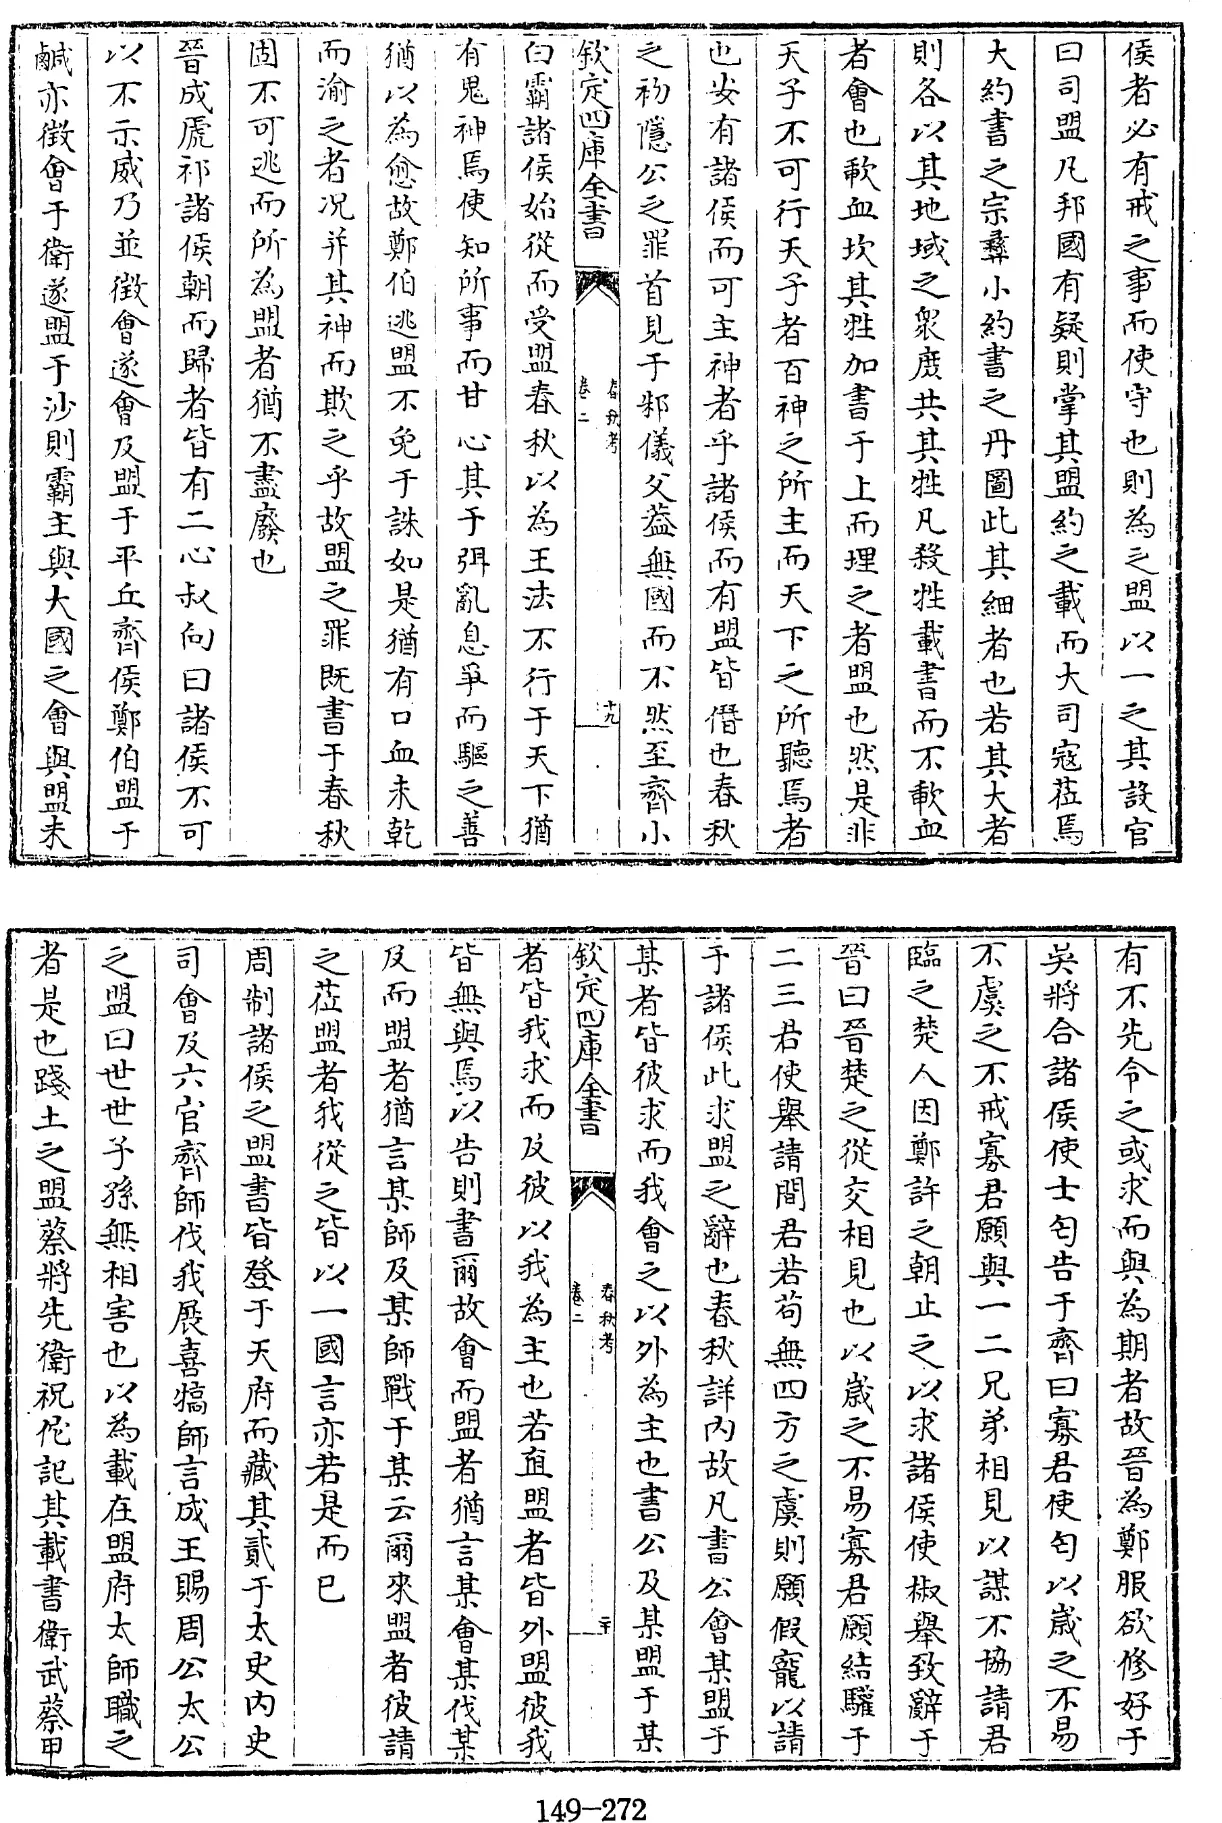 侯者必有戒之事而使守也則為之盟以一之其設官
曰司盟凡邦國有疑則掌其盟約之載而大司寇蒞焉
大約書之宗彛小約書之丹圖此其細者也若其大者
則各以其地域之衆庻共其牲凡殺牲載書而不歃血
者會也歃血坎其牲加書于上而埋之者盟也然是非
天子不可行天子者百神之所主而天下之所聽焉者
也安有諸侯而可主神者乎諸侯而有盟皆僭也春秋
之初隱公之罪首見于邾儀父葢無國而不然至齊小
欽定四庫全書
春秋考
卷二
十九
白霸諸侯始從而受盟春秋以為王法不行于天下猶
有鬼神焉使知所事而甘心其于弭亂息爭而驅之善
猶以為愈故鄭伯逃盟不免于誅如是猶有口血未乾
而渝之者况并其神而欺之乎故盟之罪既書于春秋
固不可逃而所為盟者猶不盡廢也
晉成虒祁諸侯朝而歸者皆有二心叔向曰諸侯不可
以不示威乃並徵會遂會及盟于平丘齊侯鄭伯盟于
鹹亦徵會于衛遂盟于沙則霸主與大國之會與盟未
有不先令之或求而與為期者故晉為鄭服欲修好于
吳將合諸侯使士匄告于齊曰寡君使匄以歲之不易
不虞之不戒寡君願與一二兄弟相見以謀不協請君
臨之楚人因鄭許之朝止之以求諸侯使椒舉致辭于
晉曰晉楚之從交相見也以歲之不易寡君願結驩于
二三君使舉請間君若苟無四方之虞則願假寵以請
于諸侯此求盟之辭也春秋詳内故凡書公會某盟于
某者皆彼求而我會之以外為主也書公及某盟于某
欽定四庫全書
春秋考
卷二
二十
者皆我求而及彼以我為主也若直盟者皆外盟彼我
皆無與焉以告則書爾故會而盟者猶言某會某伐某
及而盟者猶言某師及某師戰于某云爾來盟者彼請
之蒞盟者我從之皆以一國言亦若是而已
周制諸侯之盟書皆登于天府而藏其貳于太史内史
司會及六官齊師伐我展喜犒師言成王賜周公太公
之盟曰世世子孫無相害也以為載在盟府太師職之
者是也踐土之盟蔡將先衛祝佗記其載書衛武蔡甲
149-272